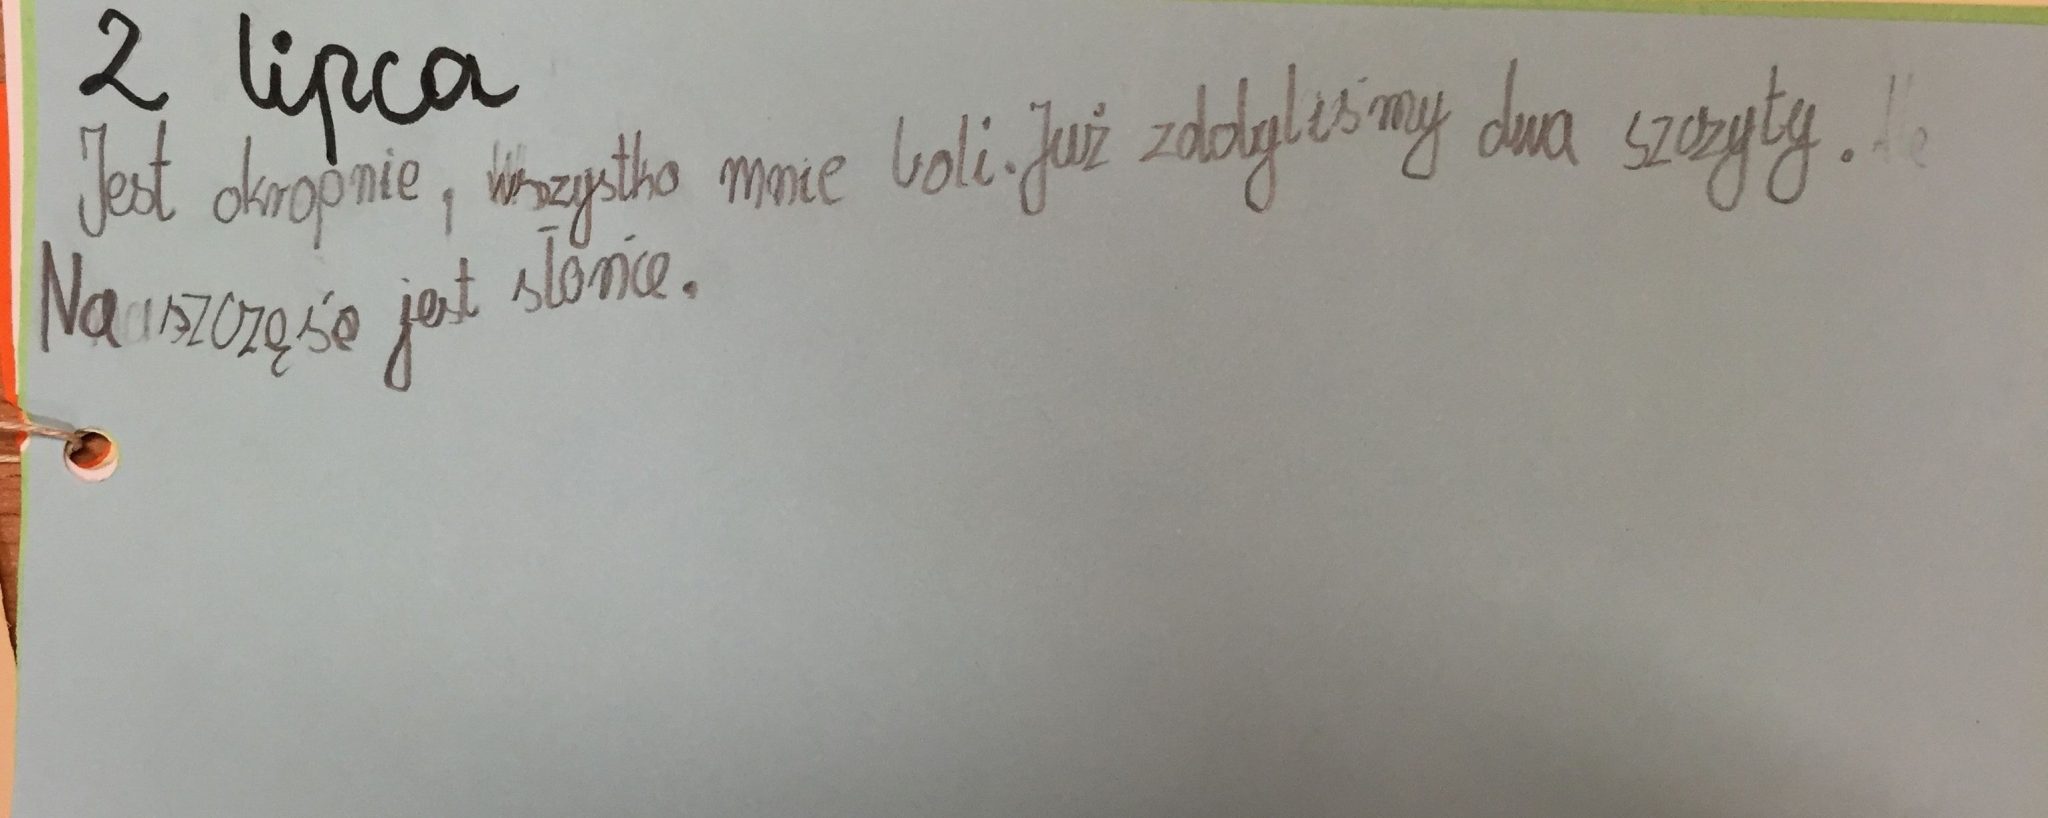 2 lipca
Jest okropnie, wszystko mnie boli. Już zdobyliśmy dwa szczyty.
Na szczęśe jest słonie.